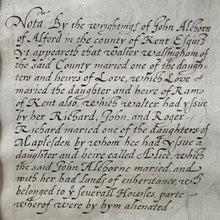 Nota By the wrightings of John Alborn
of Alford in the county of Kent Esqui3
yt appeareth that walter walsingham of
the said County married one of the daugh-
ters and heires of Love, which Love
married the daughter and heire of Rams
of Kent also, which walter had yssue
by her Richard, John, and Roger
Richard married one of the daughters of
Maplesden by whom hee had yssue a
daughter and heire called Alice, which
the said John Alborne married, and
with her had lands of enheritance, wch
belonged to yt severall Howses, parte
wherof were by hym alienated